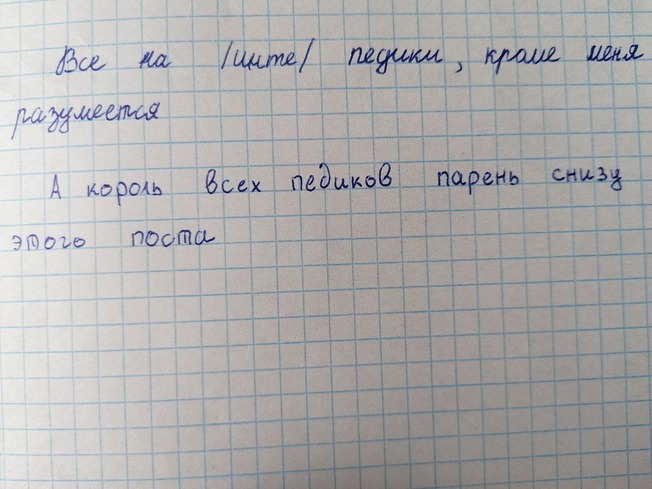 Все на /инте/ педики, кроме меня
разумеется
А король всех педиков парень снизу
этого поста